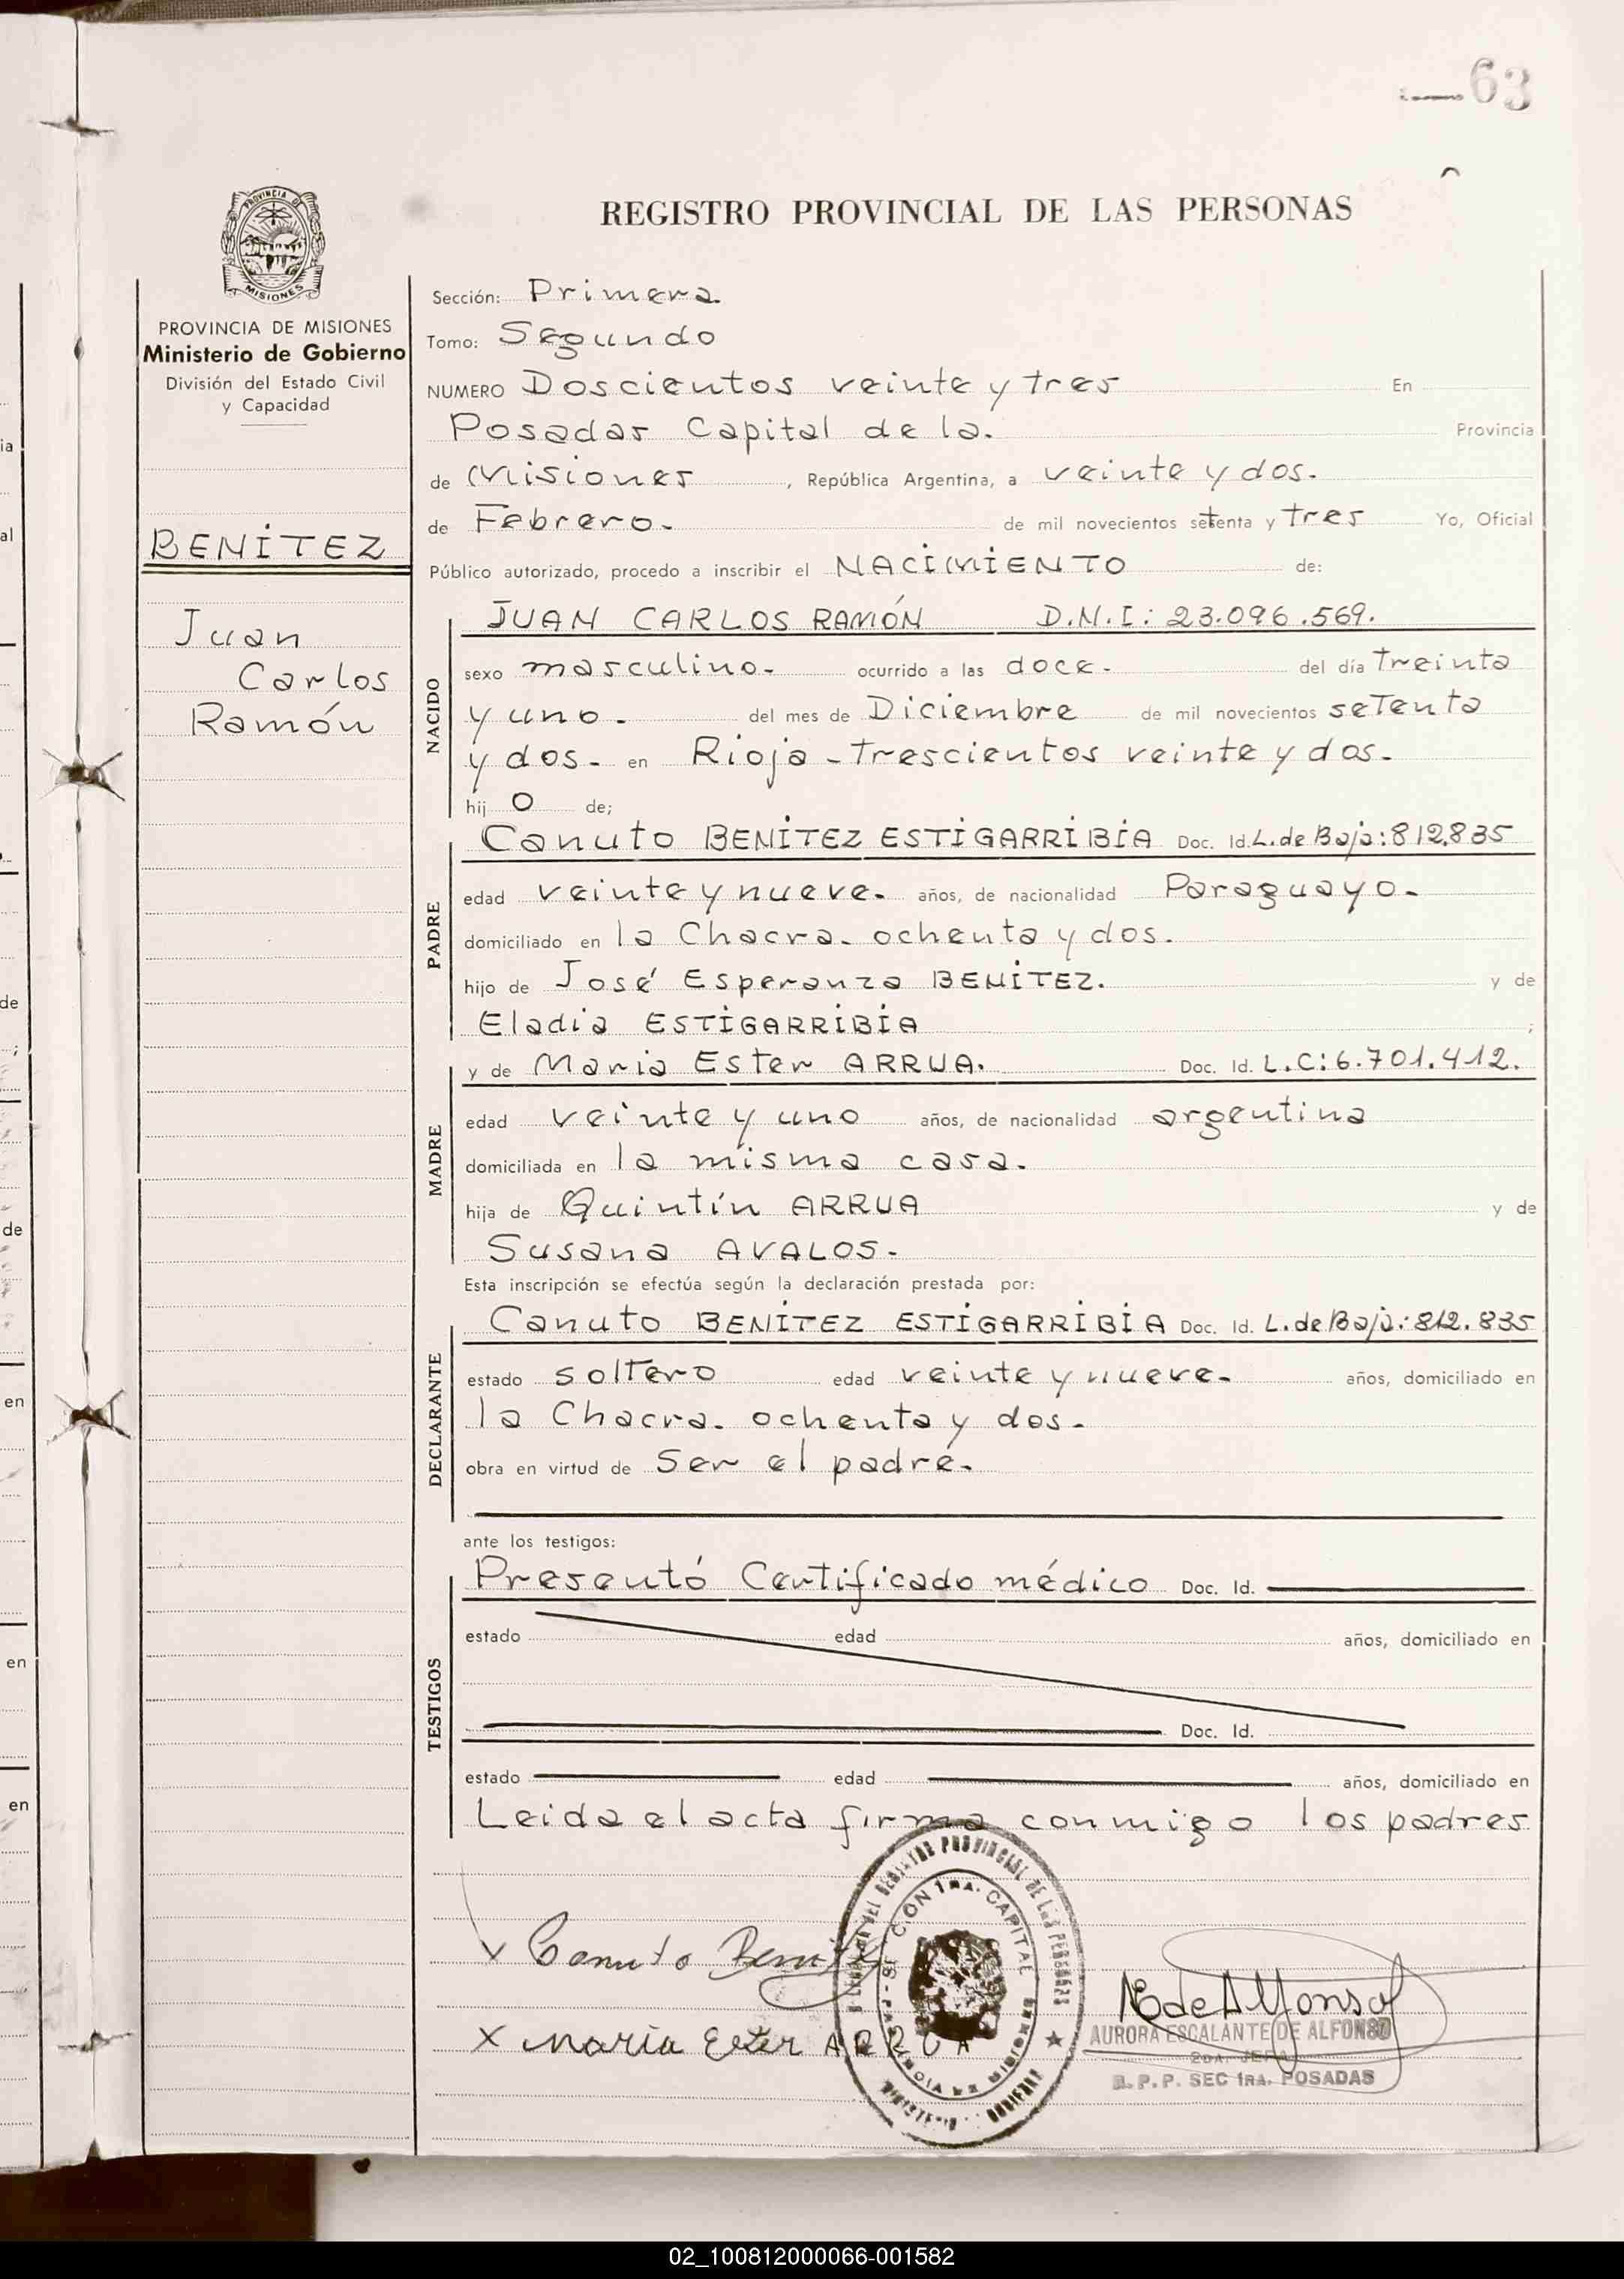 63
REGISTRO PROVINCIAL DE LAS PERSONAS
PROVINCIA DE
MISIONES
PROVINCIA DE MISIONES
Ministerio de Gobierno
División del Estado Civil
y Capacidad
BENÍTEZ
Juan
Carlos
Ramón
Sección: Primera
Tomo: Segundo
NUMERO Doscientos veinte y tres En
Posadas Capital de la. Provincia
de Misiones, República Argentina, a veinte y dos.
de Febrero. de mil novecientos setenta y tres Yo, Oficial
Público autorizado, procedo a inscribir el NACIMIENTO de:
NACIDO
JUAN CARLOS RAMÓN D.N.I: 23.096.569.
sexo masculino. ocurrido a las doce. del día treinta
y uno. del mes de Diciembre de mil novecientos setenta
y dos. en Rioja - trescientos veinte y dos.
hij o de;
PADRE
Canuto BENÍTEZ ESTIGARRIBIA Doc. Id. L. de Baja: 812.835
edad veinte y nueve. años, de nacionalidad Paraguayo.
domiciliado en la Chacra. ochenta y dos.
hijo de José Esperanza BENÍTEZ. y de
Eladia ESTIGARRIBIA ;
MADRE
y de Maria Ester ARRUA. Doc. Id. L.C: 6.701.412.
edad veinte y uno años, de nacionalidad argentina
domiciliada en la misma casa.
hija de Quintín ARRUA y de
Susana AVALOS.
Esta inscripción se efectúa según la declaración prestada por:
DECLARANTE
Canuto BENÍTEZ ESTIGARRIBIA Doc. Id. L. de Baja: 812.835
estado soltero edad veinte y nueve. años, domiciliado en
la Chacra. ochenta y dos.
obra en virtud de Ser el padre.
ante los testigos:
TESTIGOS
Presentó Certificado médico Doc. Id.
estado edad años, domiciliado en
Doc. Id.
estado edad años, domiciliado en
Leida el acta firma conmigo los padres
x Canuto Benitez
x Maria Ester ARRUA
AE de Alfonso
AURORA ESCALANTE DE ALFONSO
2DA. JEFA
R. P. P. SEC 1RA. POSADAS
02_100812000066-001582